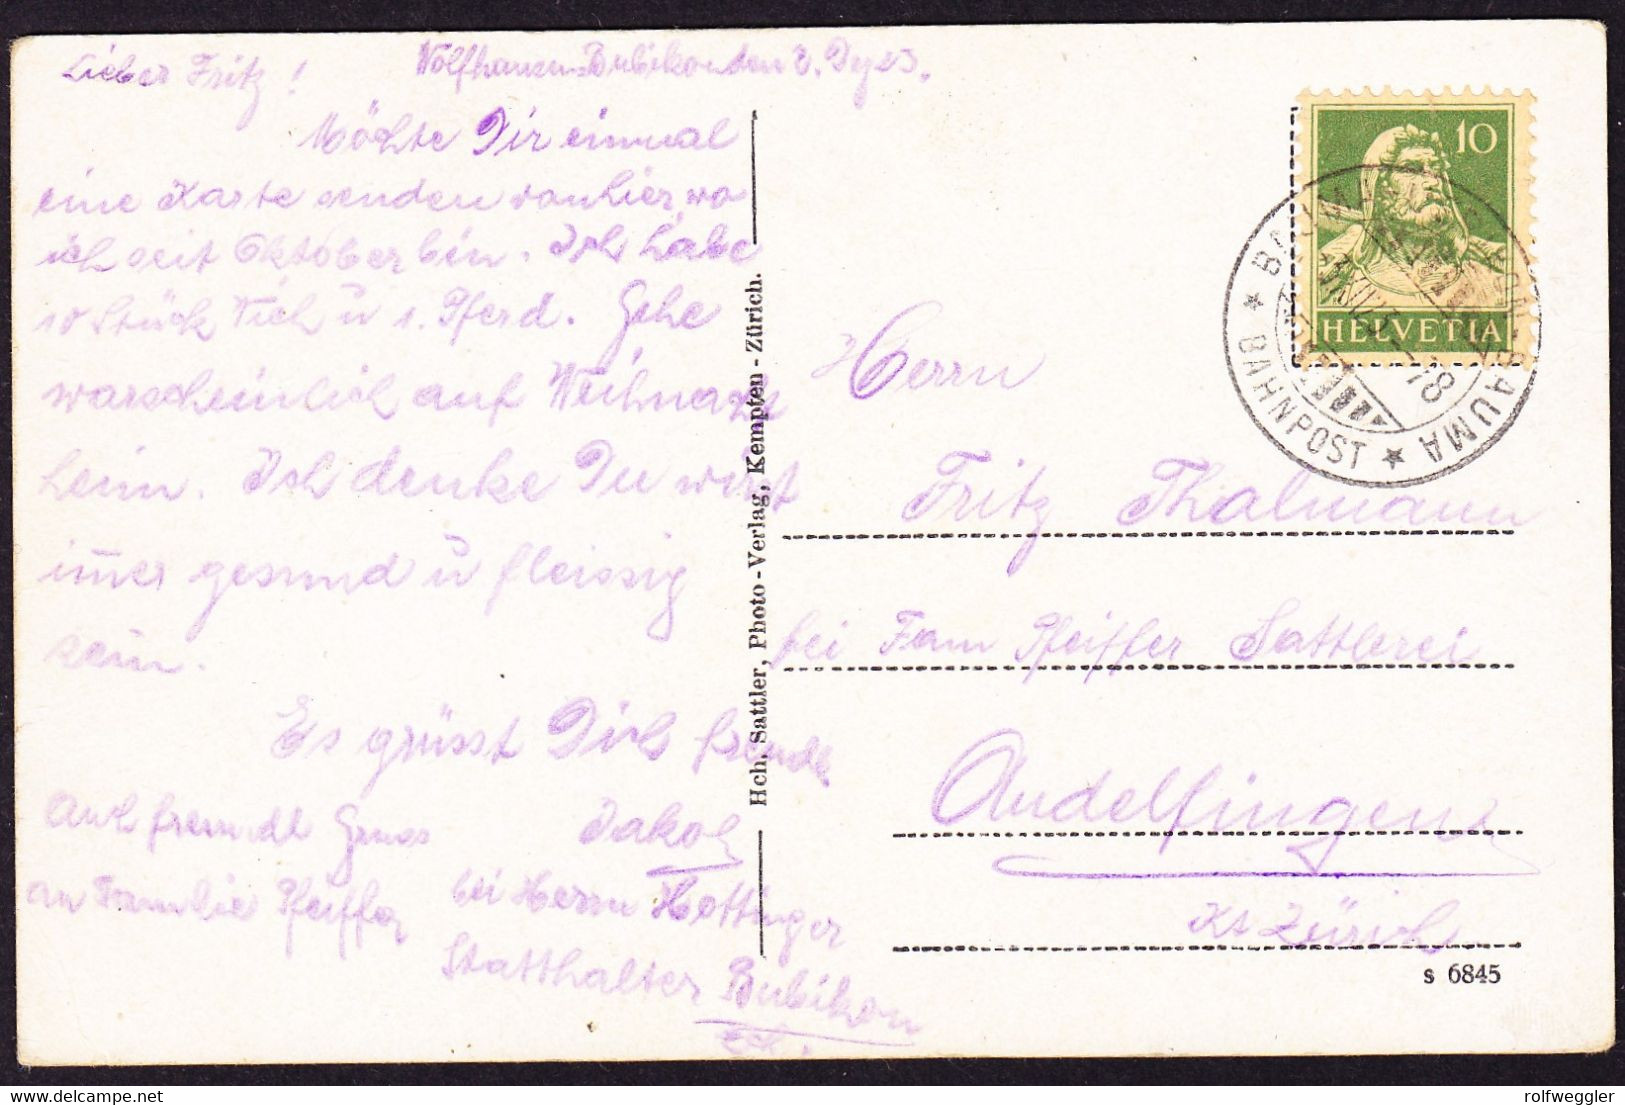 Lieber Fritz! Wolfhausen-Bubikon den 2. Dez 23.
Möchte Dir einmal
eine Karte senden von hier wo
ich seit Oktober bin. Ich habe
10 Stück Vieh u 1. Pferd. Gehe
warscheinlich auf Weihnacht
heim. Ich denke Du wirst
im̄er gesund u fleissig
sein.
Es grüsst Dich freundl.
Jakob
bei Herrn Hottinger
Statthalter Bubikon
Auch freundl Gruss
an Familie Pfeiffer
Hch. Sattler, Photo-Verlag, Kempten-Zürich.
10
HELVETIA
BAUMA
★ BAHNPOST ★
Herrn
Fritz Thalmann
bei Fam Pfeiffer Sattlerei
Andelfingen
Kt Zürich
s 6845
delcampe.net
rolfweggler